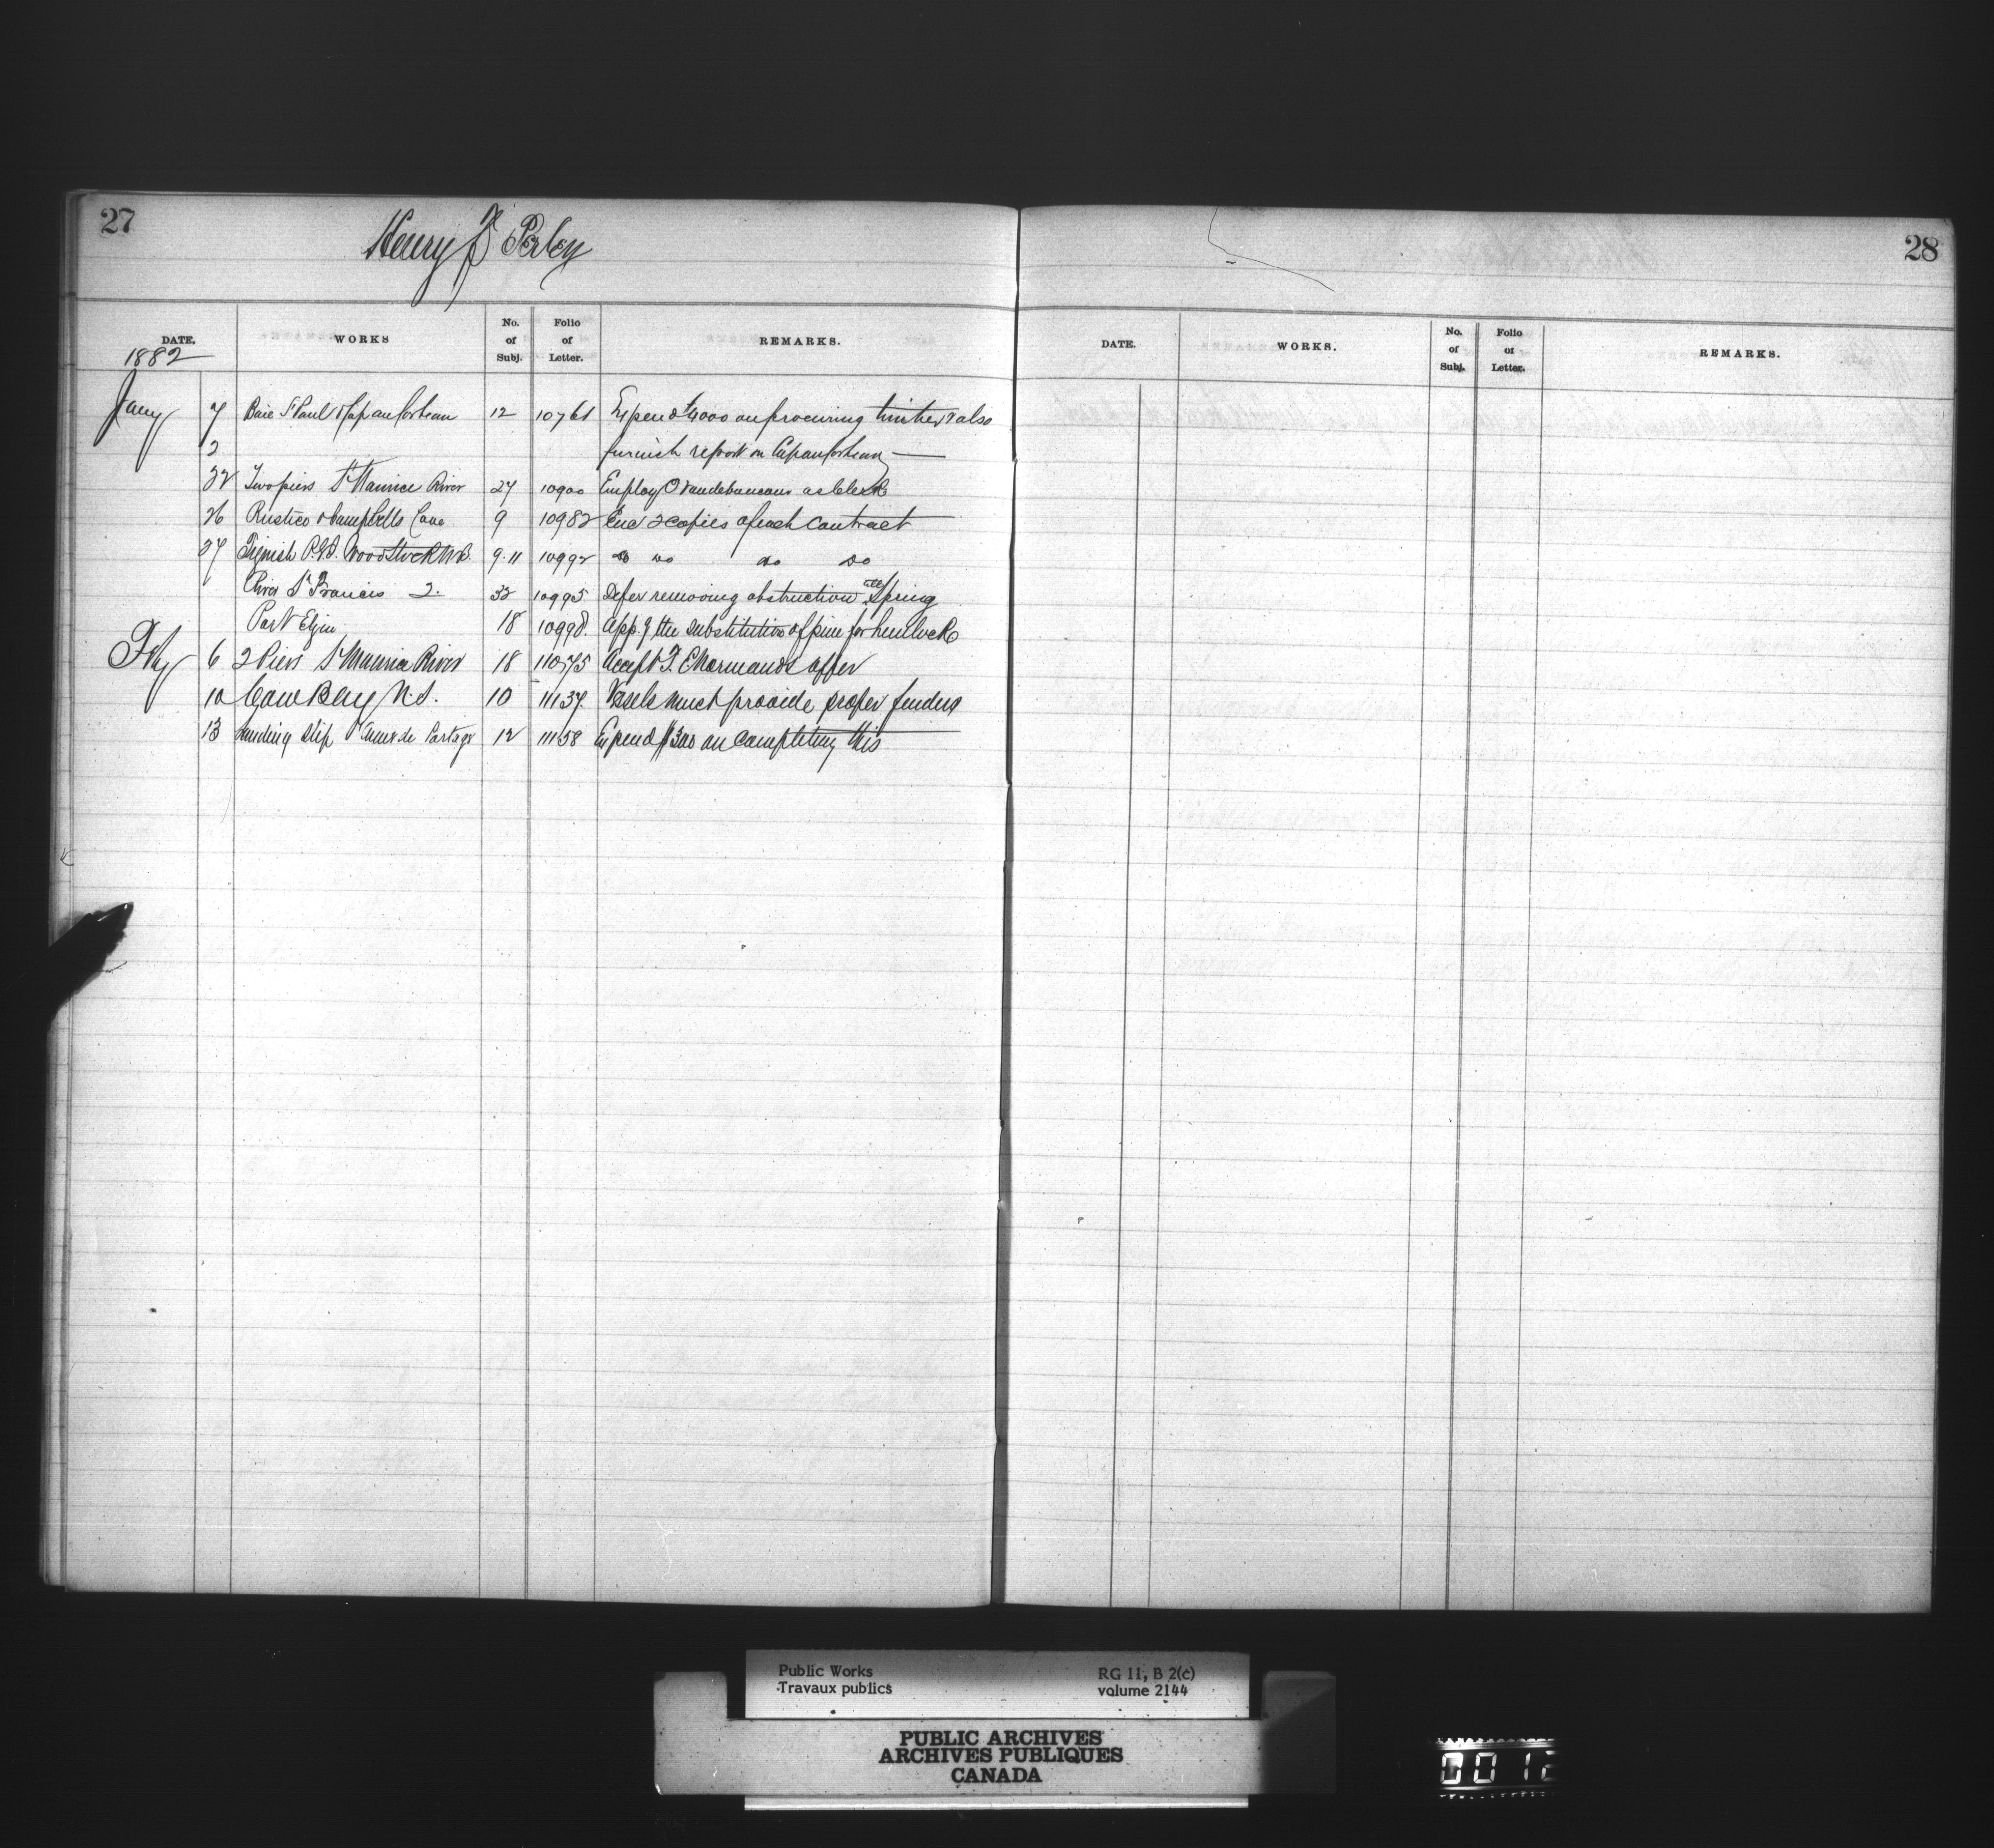 27
Henry F Perley
DATE. WORKS No. of Subj. Folio of Letter. REMARKS.
1882
Jany 7 Baie St Paul & Cap au Corbeau 12 10761 Expend $4000 on procuring timber & also
2 furnish report on Cap au Corbeau
22 Two piers St Maurice River 27 10900 Employ O as Clerk
26 Rustico & Campbells Cove 9 10982 Enc 2 copies of each Contract
27 Tignish P.E.I. Woodstock N.B. 9.11 10992 do do do do
River St Francis Q. 32 10995 Defer removing obstruction till Spring
Port Elgin 18 10998. App. g the substitution of pine for hemlock
Feby 6 2 Piers St Maurice River 18 11075 Accept T. E Normands offer
10 Cow Bay N.S. 10 11137. Vessels must provide proper fenders
13 Landing Slip Anse de Portage 12 11158 Expend $300 on completing this
28
DATE. WORKS. No. of Subj. Folio of Letter. REMARKS.
Public Works RG 11, B 2(c)
Travaux publics volume 2144
PUBLIC ARCHIVES
ARCHIVES PUBLIQUES
CANADA
0012